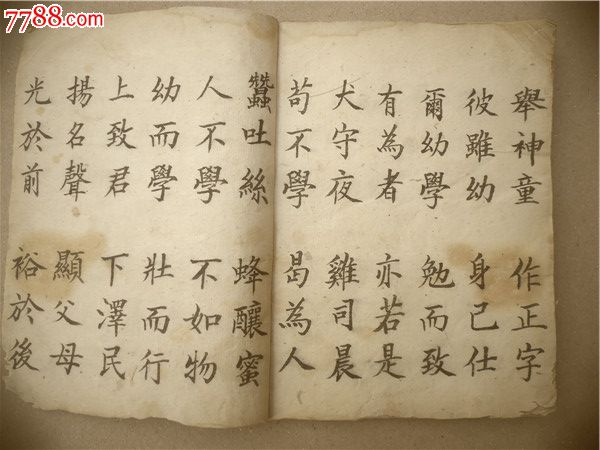 7788.com
舉神童 作正字
彼雖幼 身己仕
爾幼學 勉而致
有為者 亦若是
犬守夜 雞司晨
苟不學 曷為人
蠶吐絲 蜂釀蜜
人不學 不如物
幼而學 壯而行
上致君 下澤民
揚名聲 顯父母
光於前 裕於後